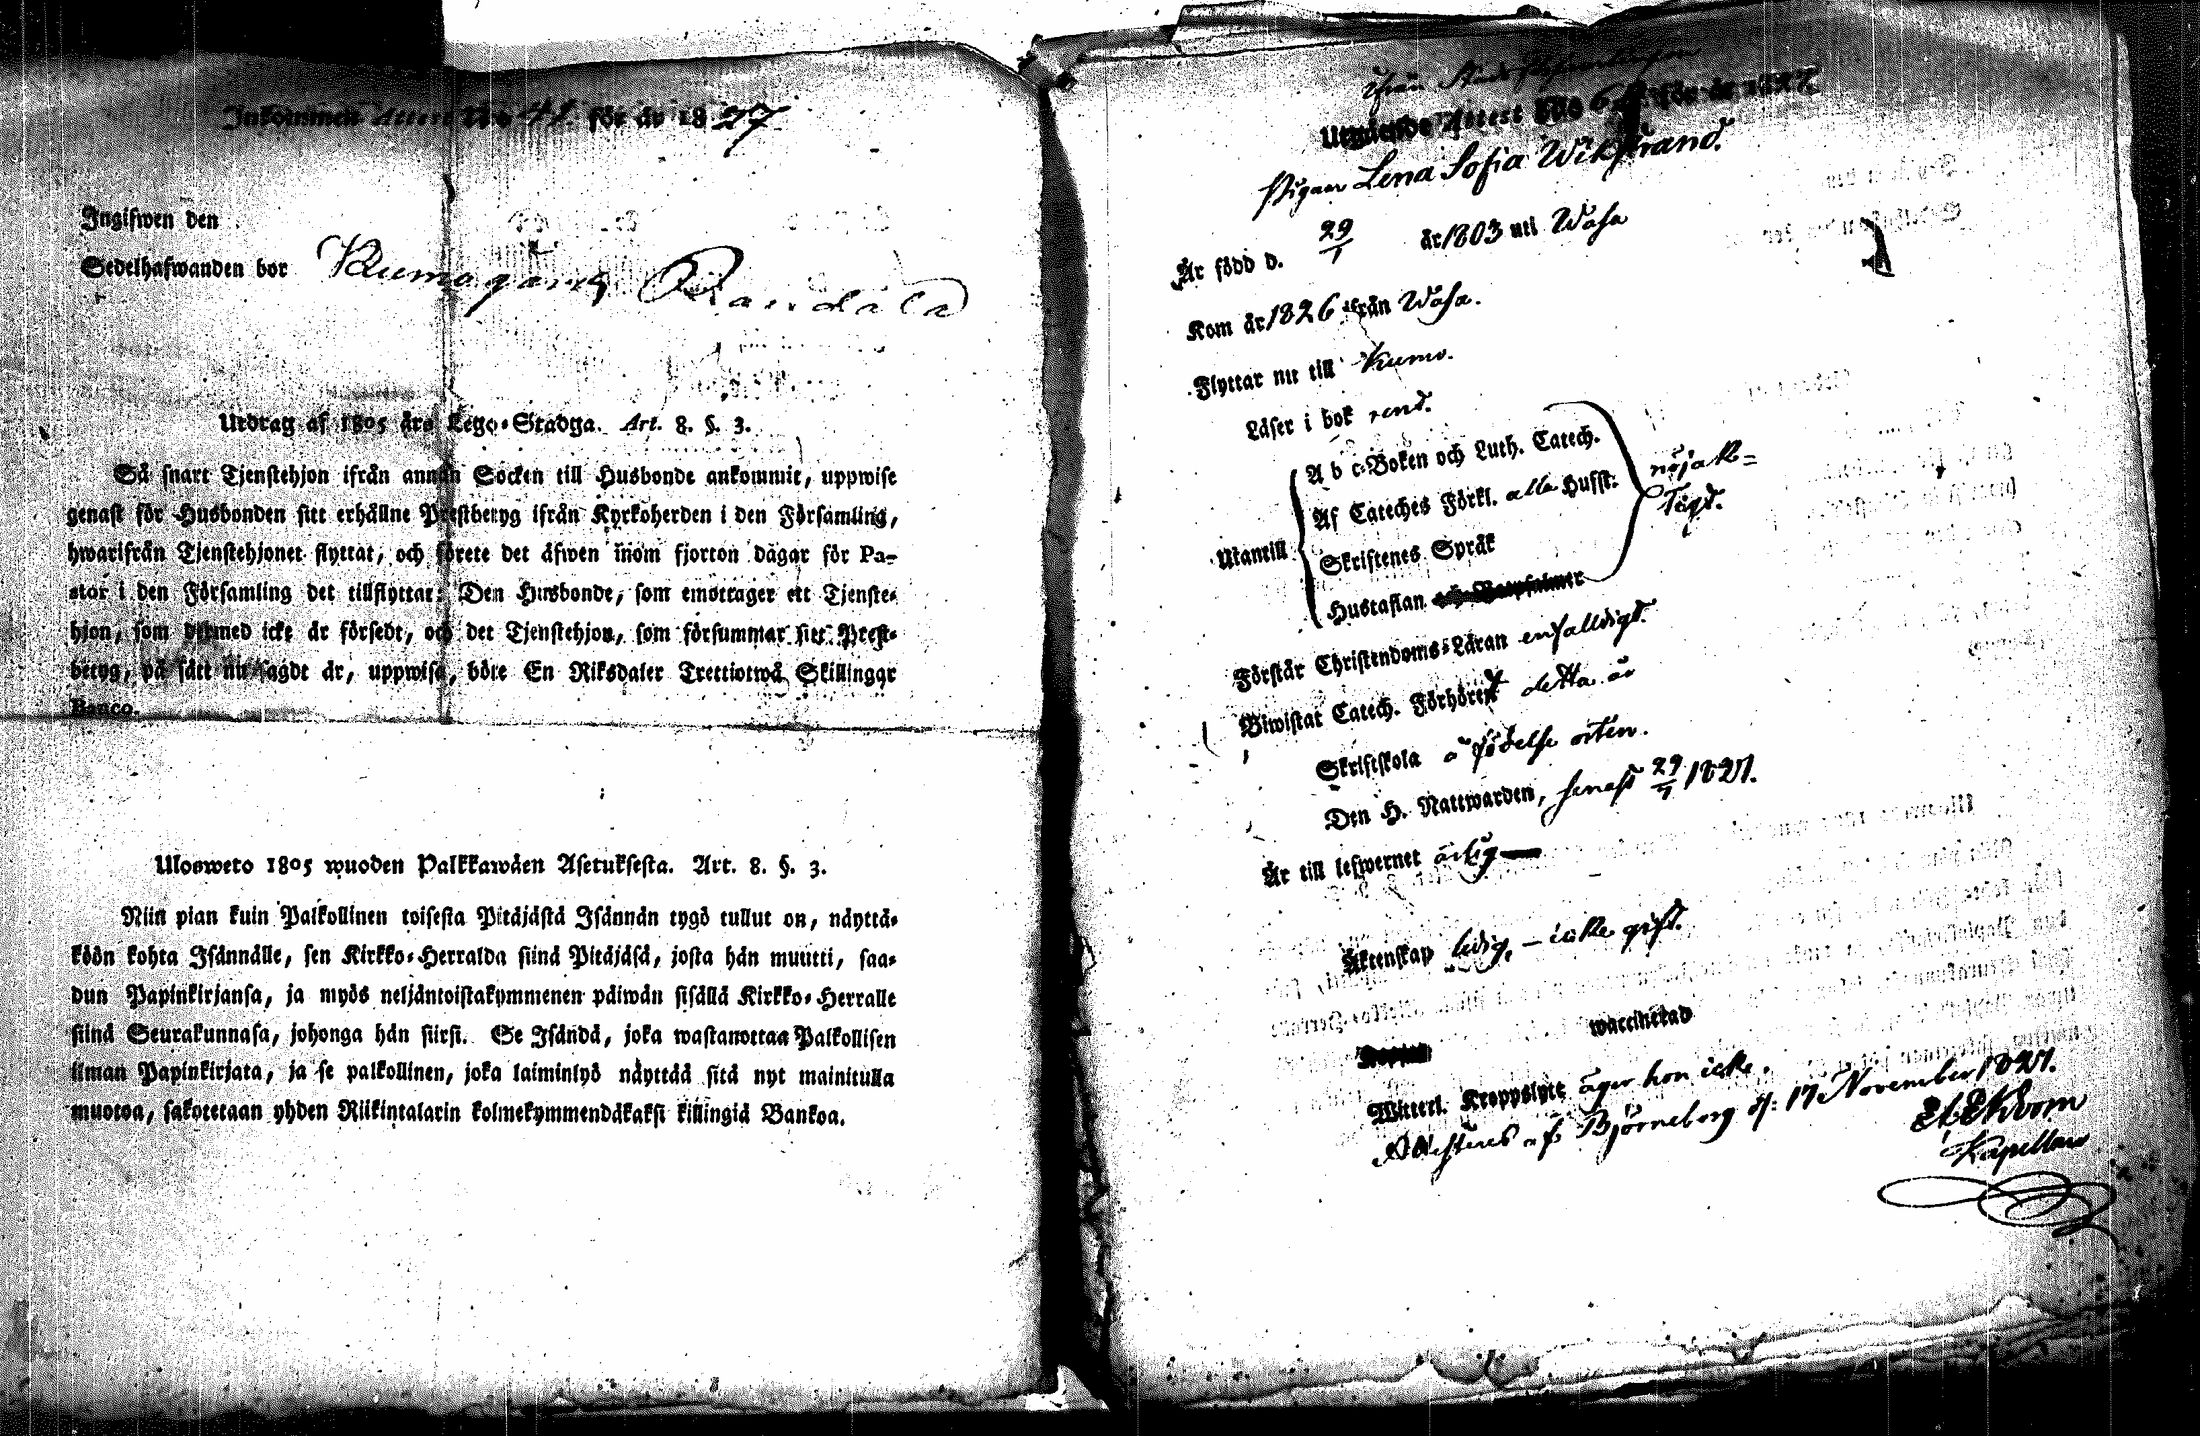 Inkommen Attest N:o 41 för år 1827
Ingifwen den
Sedelhafwanden bor Kumogård
Utdrag af 1805 års Lego-Stadga. Art. 8. §. 3.
Så snart Tjenstehjon ifrån annan Socken till Husbonde ankommit, uppwise
genast för Husbonden sitt erhållne Prestbetyg ifrån Kyrkoherden i den Församling,
hwarifrån Tjenstehjonet flyttat, och förete det äfwen inom fjorton dagar för Pa-
stor i den Församling det tillflyttar: Den Husbonde, som emottager ett Tjenste-
hjon, som dermed icke är försedt, och det Tjenstehjon, som försummar sitt Prest-
betyg, på sätt nu sagdt är, uppwisa, böte En Riksdaler Trettiotwå Skillingar
Banco.
Ulosweto 1805 wuoden Palkkawäen Asetuksesta. Art. 8. §. 3.
Niin pian kuin Palkollinen toisesta Pitäjästä Isännän tygö tullut on, näyttä-
köön kohta Isännälle, sen Kirkko-Herralda siinä Pitäjäsä, josta hän muutti, saa-
dun Papinkirjansa, ja myös neljäntoistakymmenen päiwän sisällä Kirkko-Herralle
siinä Seurakunnasa, johonga hän siirsi. Se Isändä, joka wastanottaa Palkollisen
ilman Papinkirjata, ja se palkollinen, joka laiminlyö näyttää sitä nyt mainitulla
muotoa, sakotetaan yhden Riikintalarin kolmekymmendäkaksi killingiä Bankoa.
Utgående Attest N:o för år 1827.
Pigan Lena Sofia Wikstrand.
Är född d. 29/1 år 1803 uti Wasa
Kom år 1826 ifrån Wasa.
Flyttar nu till Kumo.
Läser i bok rent.
Utantill
A b c-Boken och Luth. Catech.
Af Cateches Förkl. alla Husst:
Skriftenes Språk
Hustaflan
nöjak=
tigt.
Förstår Christendoms-Läran enfaldigt.
Biwistat Catech. Förhöret detta år
Skriftskola å födelse orten.
Den H. Nattwarden, senast 29/7 1827.
Är till lefwernet ärlig
Äktenskap ledig, – icke gift.
waccinerad
Witterl. Kroppslyte äger hon icke.
Attesteras af Björneborg d: 17 November 1827.
Kapellan